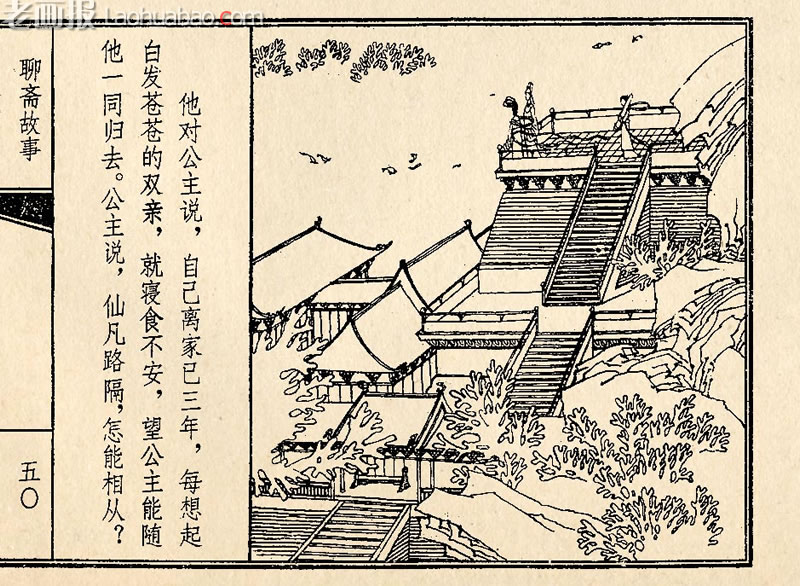 老画报
Laohuabao.com
他对公主说，自己离家已三年，每想起
白发苍苍的双亲，就寝食不安，望公主能随
他一同归去。公主说，仙凡路隔，怎能相从？
聊斋故事
五〇